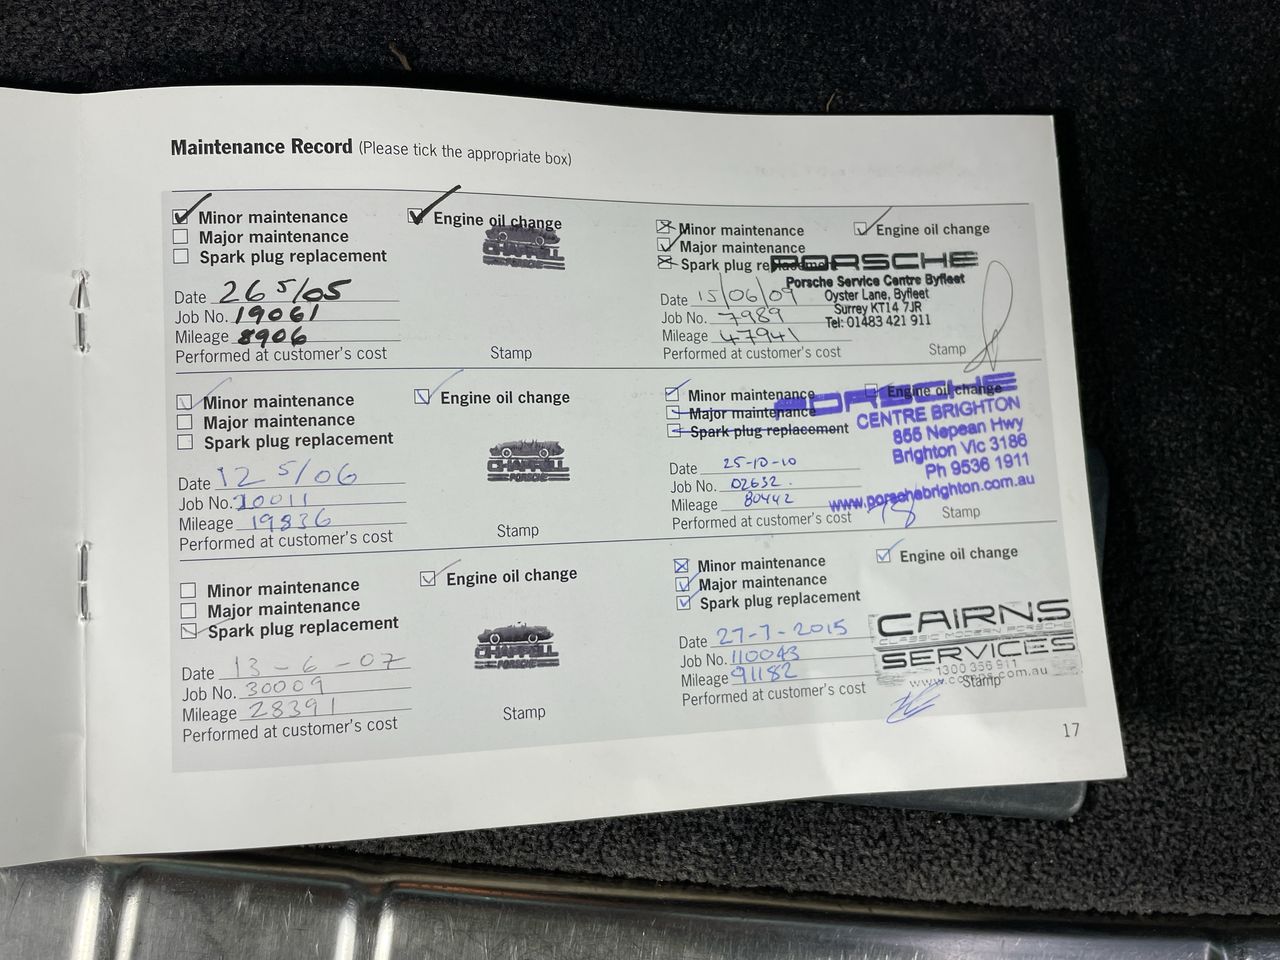 Maintenance Record (Please tick the appropriate box)
Minor maintenance
Engine oil change
Major maintenance
Spark plug replacement
CHAPPELL
PORSCHE
Date 26 5/05
Job No. 19061
Mileage 8906
Performed at customer's cost
Stamp
Minor maintenance
Engine oil change
Major maintenance
Spark plug replacement
CHAPPELL
PORSCHE
Date 12 5/06
Job No. 20011
Mileage 19836
Performed at customer's cost
Stamp
Minor maintenance
Engine oil change
Major maintenance
Spark plug replacement
CHAPPELL
PORSCHE
Date 13-6-07
Job No. 30009
Mileage 28391
Performed at customer's cost
Stamp
Minor maintenance
Engine oil change
Major maintenance
Spark plug replacement
PORSCHE
Porsche Service Centre Byfleet
Oyster Lane, Byfleet
Surrey KT14 7JR
Tel: 01483 421 911
Date 15/06/09
Job No. 7989
Mileage 47941
Performed at customer's cost
Stamp
Minor maintenance
Engine oil change
Major maintenance
Spark plug replacement
PORSCHE
CENTRE BRIGHTON
855 Nepean Hwy
Brighton Vic 3186
Ph 9536 1911
www.porschebrighton.com.au
Date 25-10-10
Job No. 02632
Mileage 80442
Performed at customer's cost
Stamp
Minor maintenance
Engine oil change
Major maintenance
Spark plug replacement
CAIRNS
CLASSIC MODERN PORSCHE
SERVICES
1300 356 911
Date 27-7-2015
Job No. 110043
Mileage 91182
Performed at customer's cost
Stamp
17